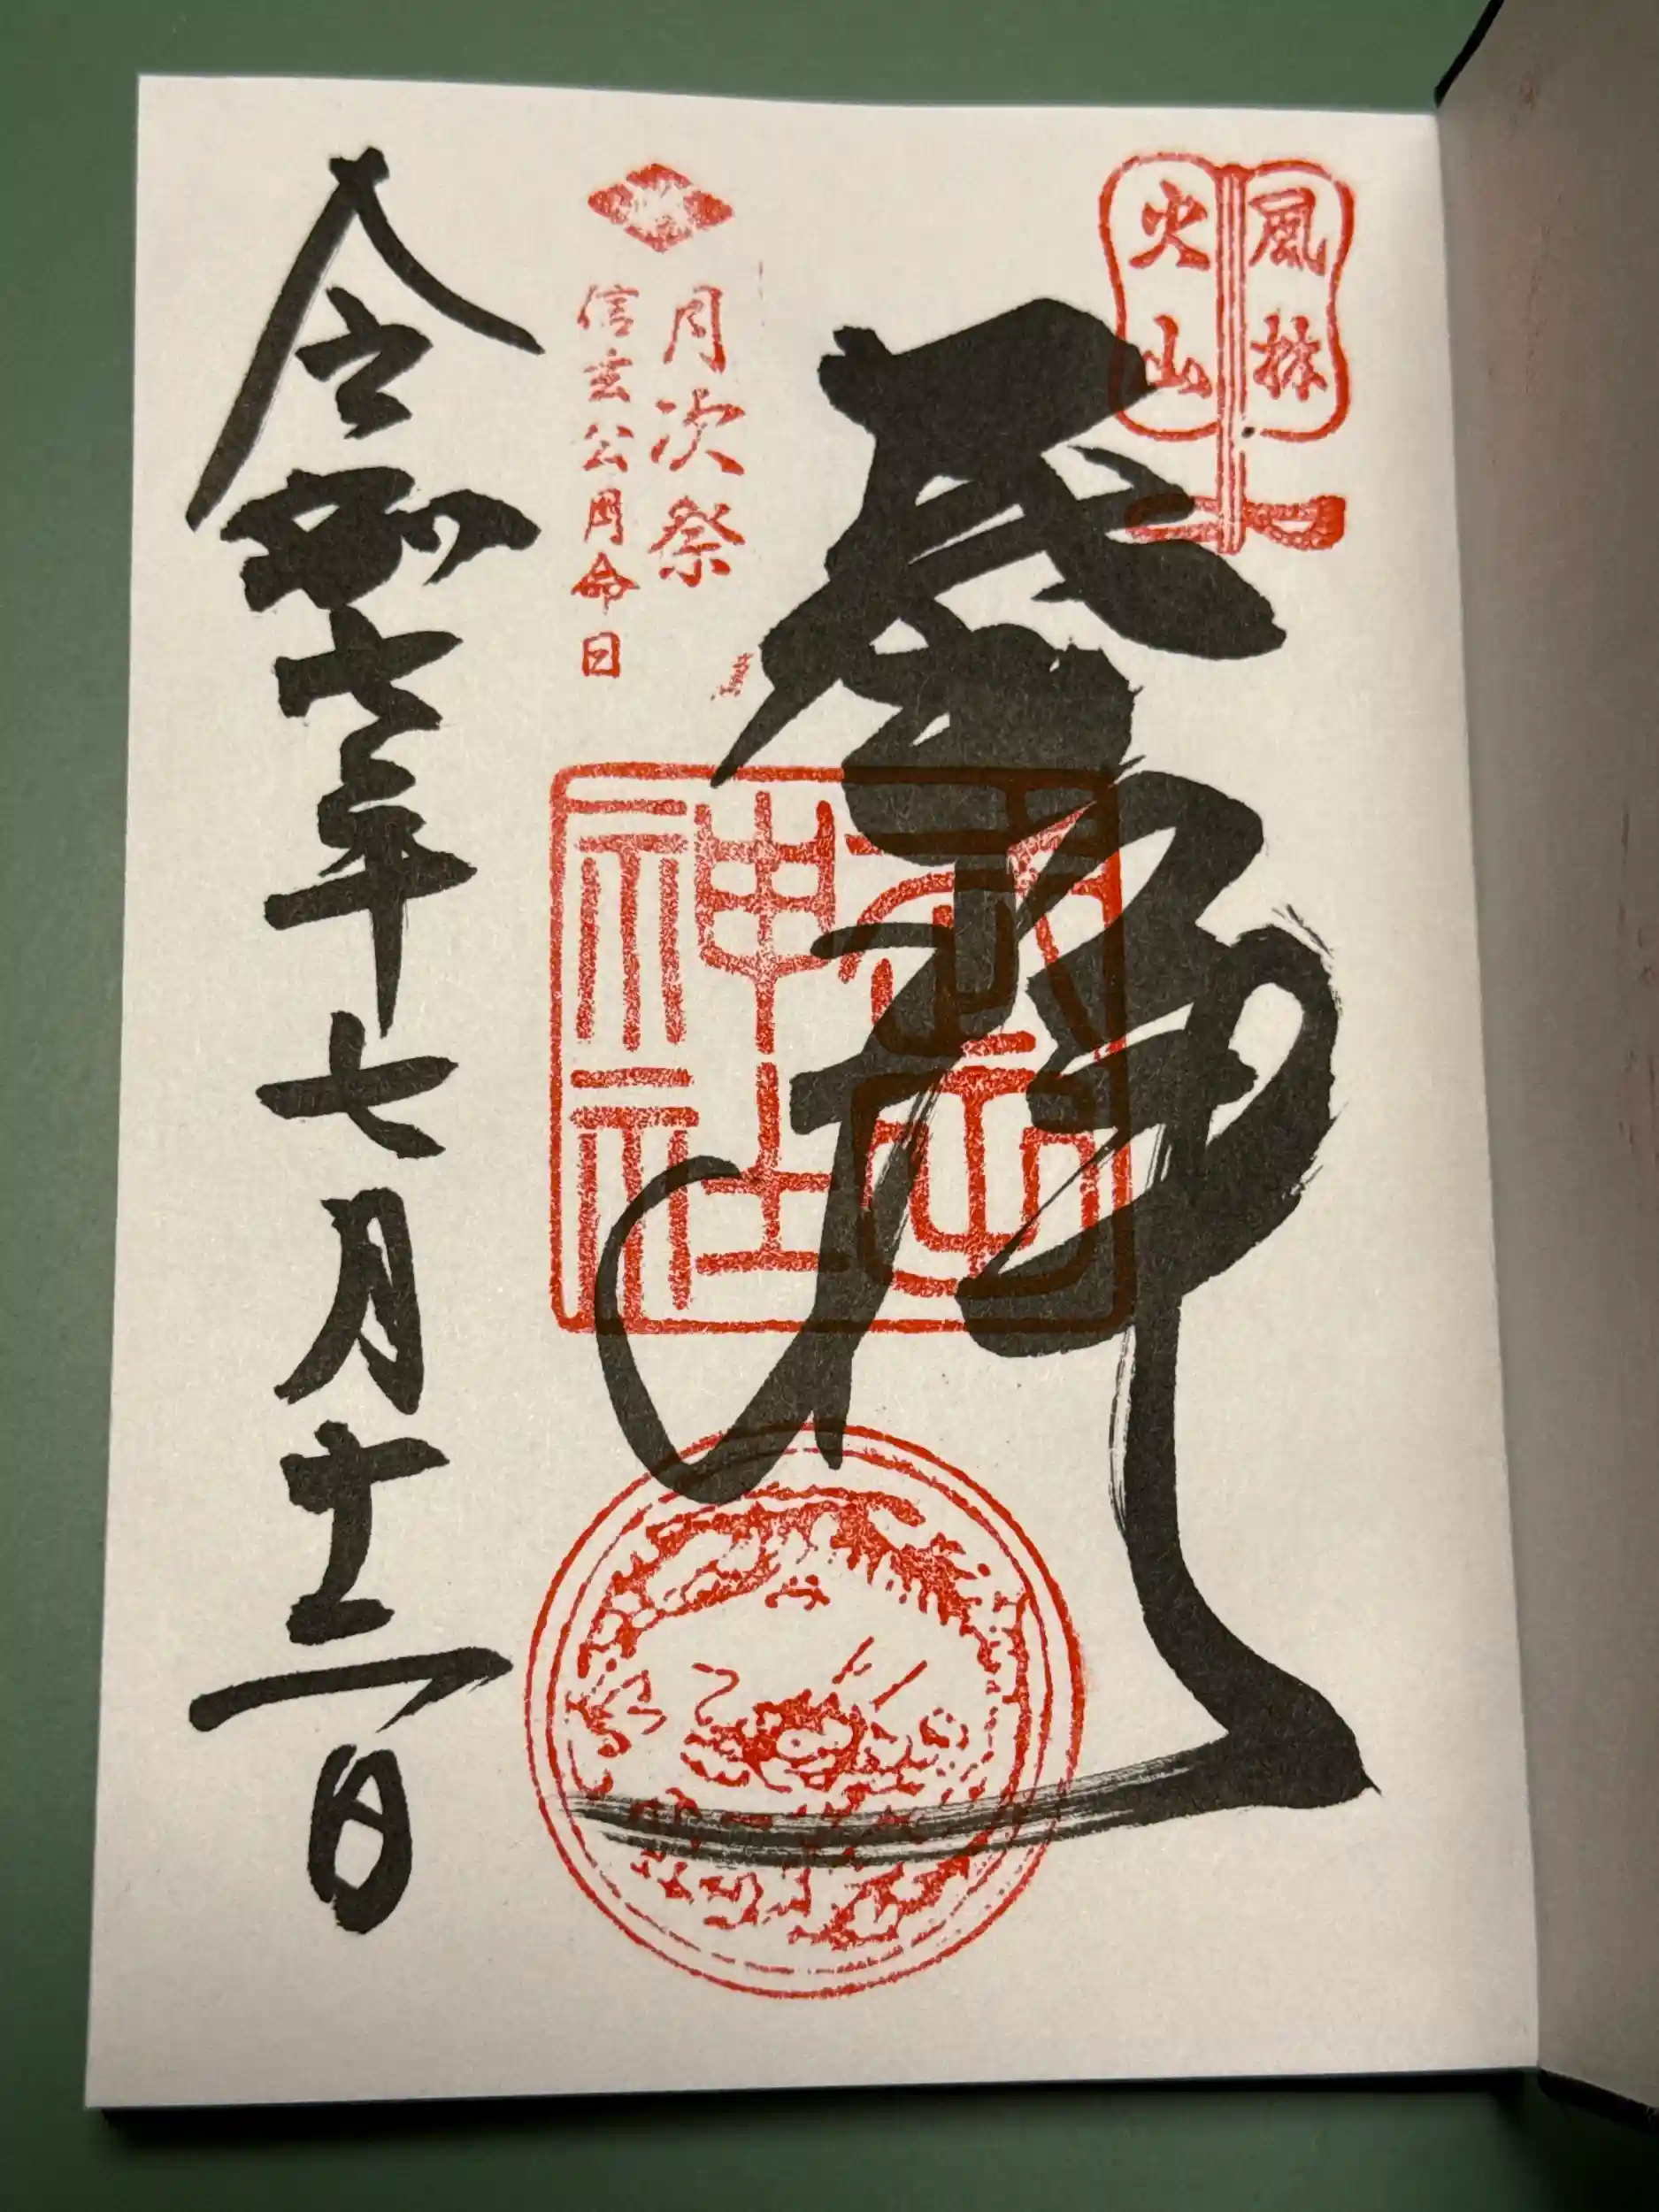 風林
火山
月次祭
信玄公月命日
武田
神社
令和七年七月十二日